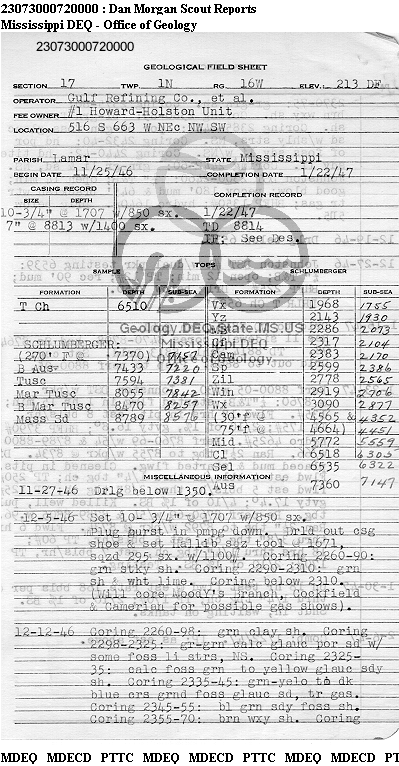 23073000720000 : Dan Morgan Scout Reports
Mississippi DEQ - Office of Geology
23073000720000
GEOLOGICAL FIELD SHEET
SECTION 17 TWP. 1N RG. 16W ELEV. 213 DF
OPERATOR Gulf Refining Co., et al.
FEE OWNER #1 Howard-Holston Unit
LOCATION 516 S 663 W NEc NW SW
PARISH Lamar STATE Mississippi
BEGIN DATE 11/25/46 COMPLETION DATE 1/22/47
CASING RECORD COMPLETION RECORD
SIZE DEPTH
10-3/4" @ 1707 w/850 sx. 1/22/47
7" @ 8813 w/1400 sx. TD 8814
IP: See Des.
SAMPLE TOPS SCHLUMBERGER
FORMATION DEPTH SUB-SEA FORMATION DEPTH SUB-SEA
T Ch 6510 Vx 1968 1755
Yz 2143 1930
2286 2073
SCHLUMBERGER: 2317 2104
(270' F @ 7370) 7157 Cam 2383 2170
B Aus 7433 7220 Sp 2599 2386
Tusc 7594 7381 Zil 2778 2565
Mar Tusc 8055 7842 Win 2919 2706
B Mar Tusc 8470 8257 Wx 3090 2877
Mass Sd 8789 8576 (30'f @ 4565 & 4352
75'f @ 4664) 4451
Mid 5772 5559
Cl 6518 6305
Sel 6535 6322
Aus 7360 7147
Geology.DEQ.state.MS.US
Mississippi DEQ
Office of Geology
MISCELLANEOUS INFORMATION
11-27-46 Drlg below 1350.
12-5-46 Set 10- 3/4" @ 1707 w/850 sx.
Plug burst in pmpg down. Drld out csg
shoe & set Hallib sqz tool @ 1671,
sqzd 295 sx. w/1100#. Coring 2260-90:
grn stky sh. Coring 2290-2310: grn
sh & wht lime. Coring below 2310.
(Will core Moody's Branch, Cockfield
& Camerian for possible gas shows).
12-12-46 Coring 2260-98: grn clay sh. Coring
2298-2325: gr-grn calc glauc por sd w/
some foss li strs, NS. Coring 2325-
35: calc foss grn to yellow glauc sdy
sh. Coring 2335-45: grn-yelo to dk
blue crs grnd foss glauc sd, tr gas.
Coring 2345-55: bl grn sdy foss sh.
Coring 2355-70: brn wxy sh. Coring
MDEQ MDECD PTTC MDEQ MDECD PTTC MDEQ MDECD PT